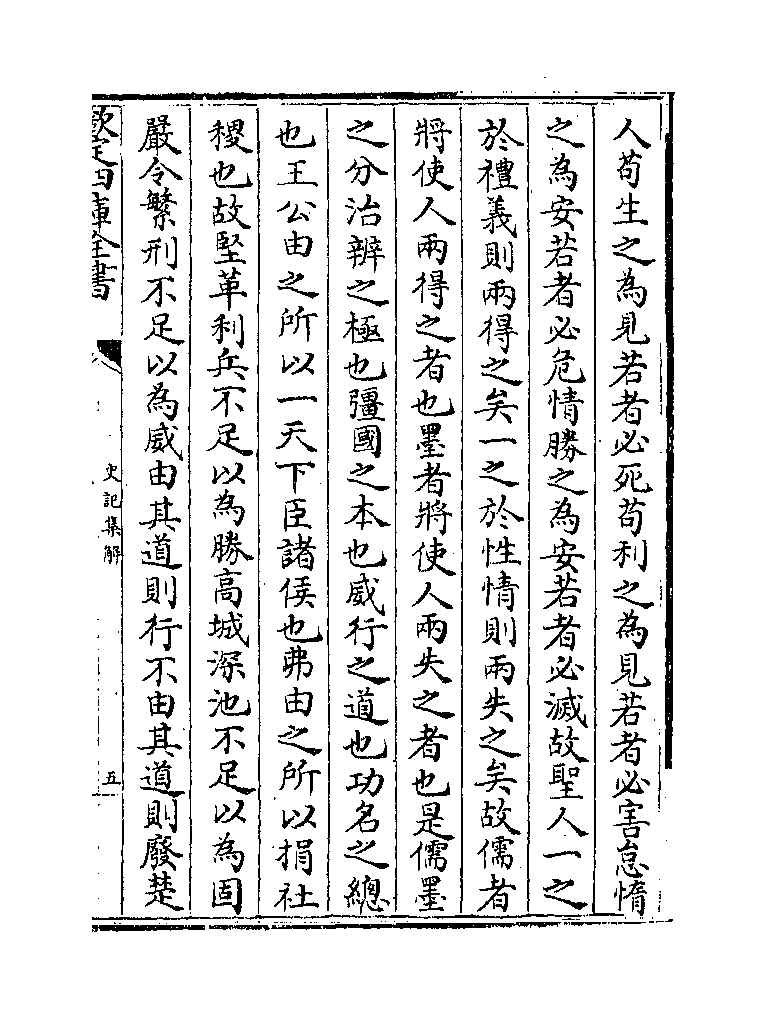 人苟生之為見若者必死苟利之為見若者必害怠惰
之為安若者必危情勝之為安若者必滅故聖人一之
於禮義則兩得之矣一之於性情則兩失之矣故儒者
將使人兩得之者也墨者將使人兩失之者也是儒墨
之分治辨之極也彊國之本也威行之道也功名之總
也王公由之所以一天下臣諸侯也弗由之所以捐社
稷也故堅革利兵不足以為勝高城深池不足以為固
嚴令繁刑不足以為威由其道則行不由其道則廢楚
欽定四庫全書
史記集解
五